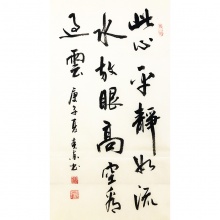 此心平静如流
水放眼高空看
过云庚子夏